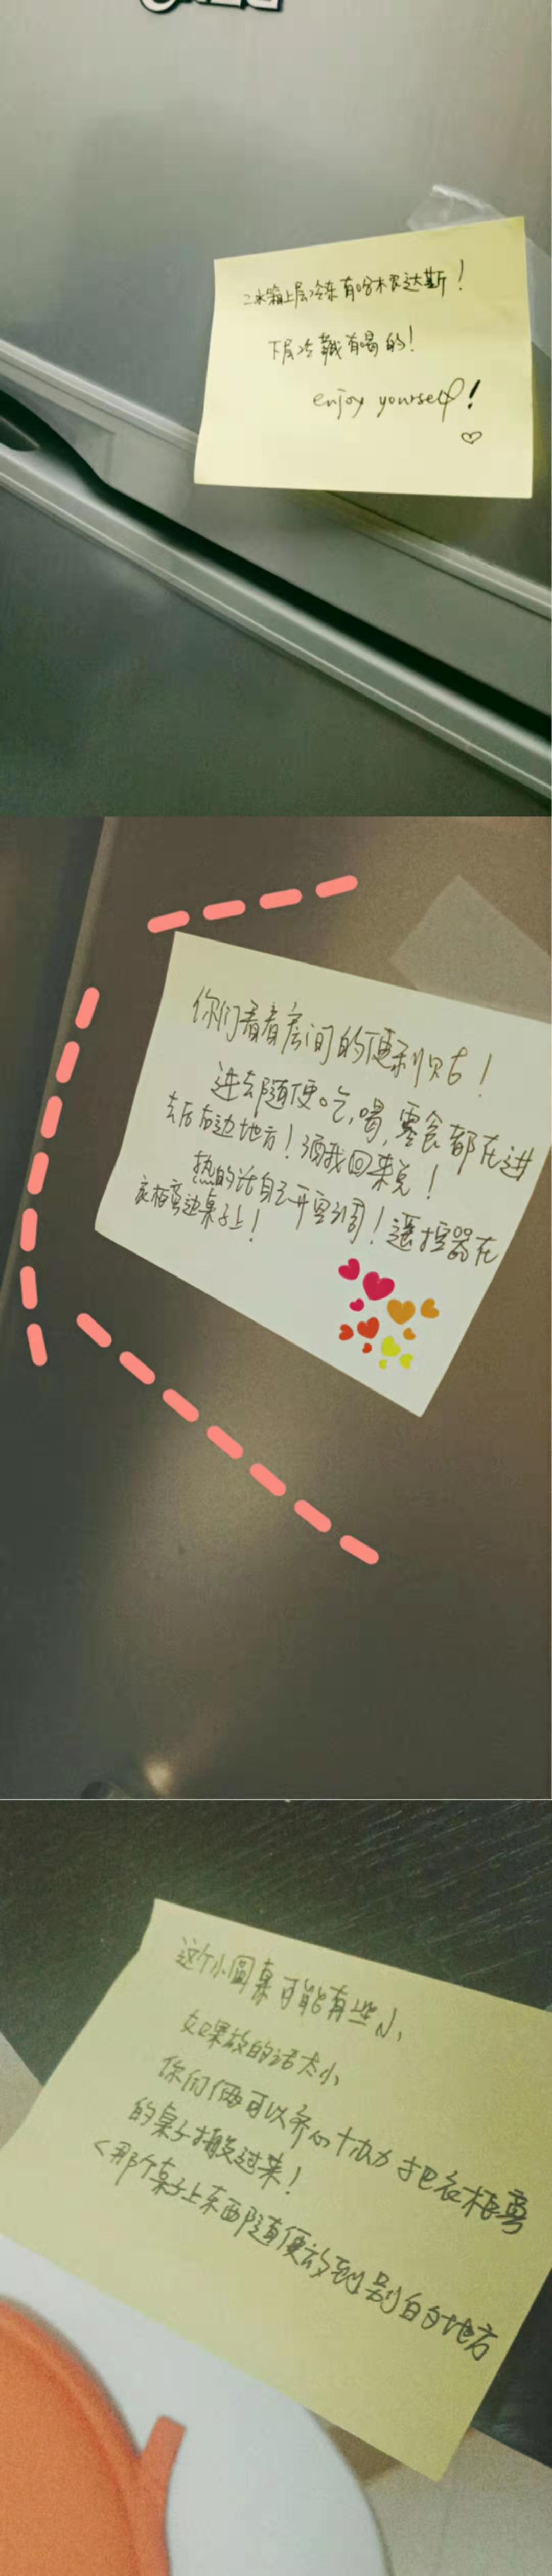 冰箱上层冷冻有哈根达斯！
下层冷藏有喝的！
enjoy yourself！
你们看看房间的便利贴！
进去随便吃，喝，零食都在进
去后右边地方！等我回来完！
热的话自己开空调！遥控器在
衣柜旁边桌子上！
这个小圆桌可能有些小，
如果放的话太小，
你们俩可以齐心协力把衣柜旁
的桌子搬过来！
<那个桌子上东西随便放到别的地方